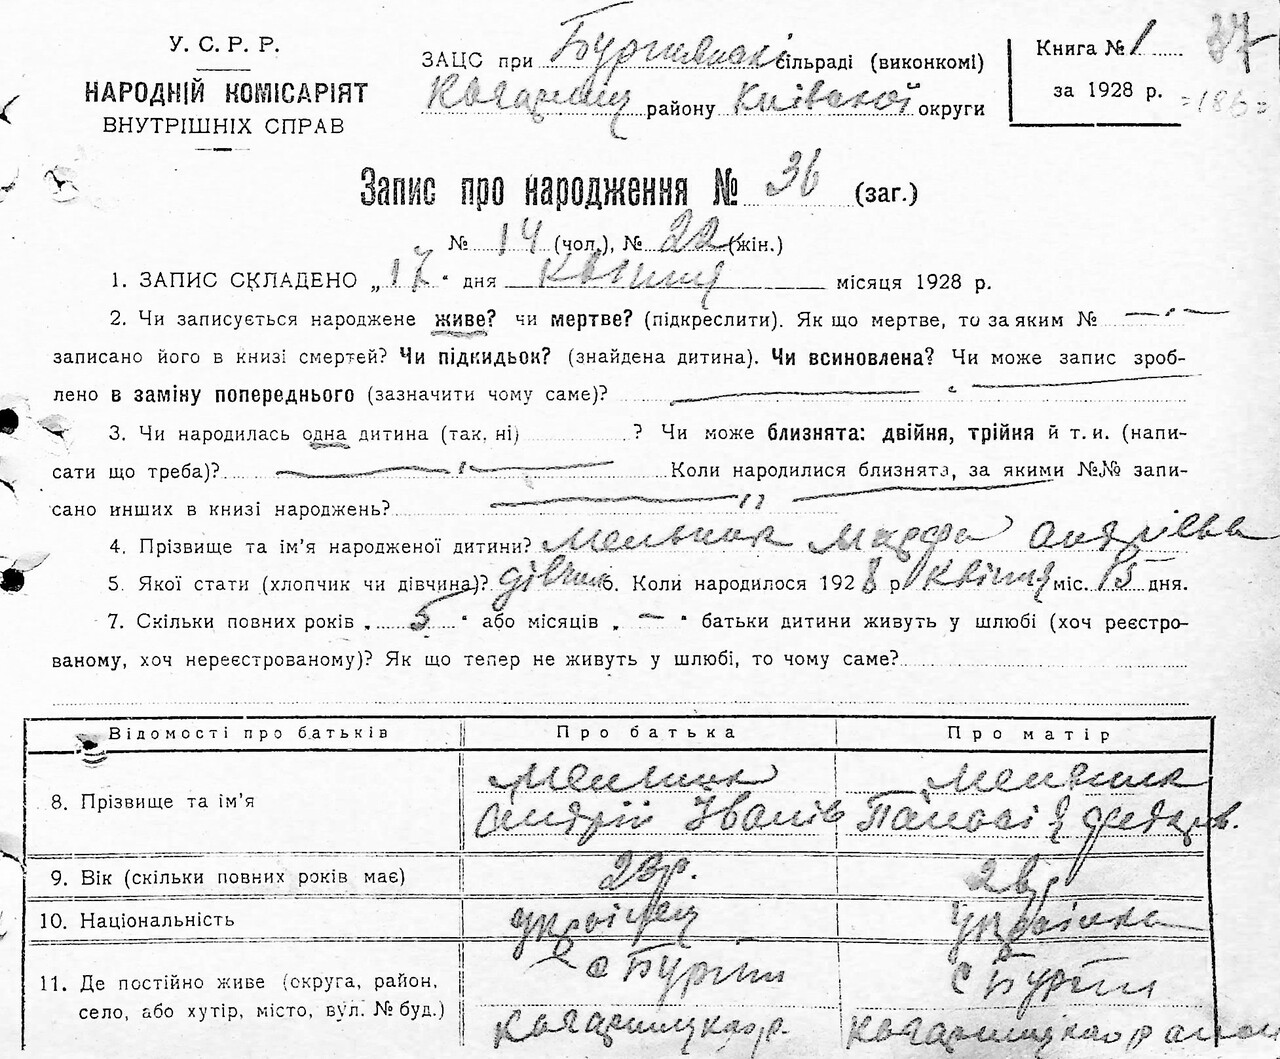 У. С. Р. Р.
НАРОДНІЙ КОМІСАРІЯТ
ВНУТРІШНІХ СПРАВ
ЗАЦС при сільраді (виконкомі)
району Київської округи
Книга № 1
за 1928 р.
37
=186=
Запис про народження № 36 (заг.)
№ 14 (чол.), № 22 (жін.)
1. ЗАПИС СКЛАДЕНО „17" дня квітня місяця 1928 р.
2. Чи записується народжене живе? чи мертве? (підкреслити). Як що мертве, то за яким №
записано його в книзі смертей? Чи підкидьок? (знайдена дитина). Чи всиновлена? Чи може запис зроб-
лено в заміну попереднього (зазначити чому саме)?
3. Чи народилась одна дитина (так, ні) ? Чи може близнята: двійня, трійня й т. и. (напи-
сати що треба)? Коли народилися близнята, за якими №№ запи-
сано инших в книзі народжень?
4. Прізвище та ім'я народженої дитини? Мельник Марфа Андріївна
5. Якої стати (хлопчик чи дівчина)? дівчина 6. Коли народилося 1928 р. квітня міс. 15 дня.
7. Скільки повних років „ 5 " або місяців „ — " батьки дитини живуть у шлюбі (хоч реєстро-
ваному, хоч нереєстрованому)? Як що тепер не живуть у шлюбі, то чому саме?
Відомості про батьків Про батька Про матір
8. Прізвище та ім'я Мельник Андрій Іванів Мельник
9. Вік (скільки повних років має)
10. Національність українець Українка
11. Де постійно живе (округа, район,
село, або хутір, місто, вул. № буд.)